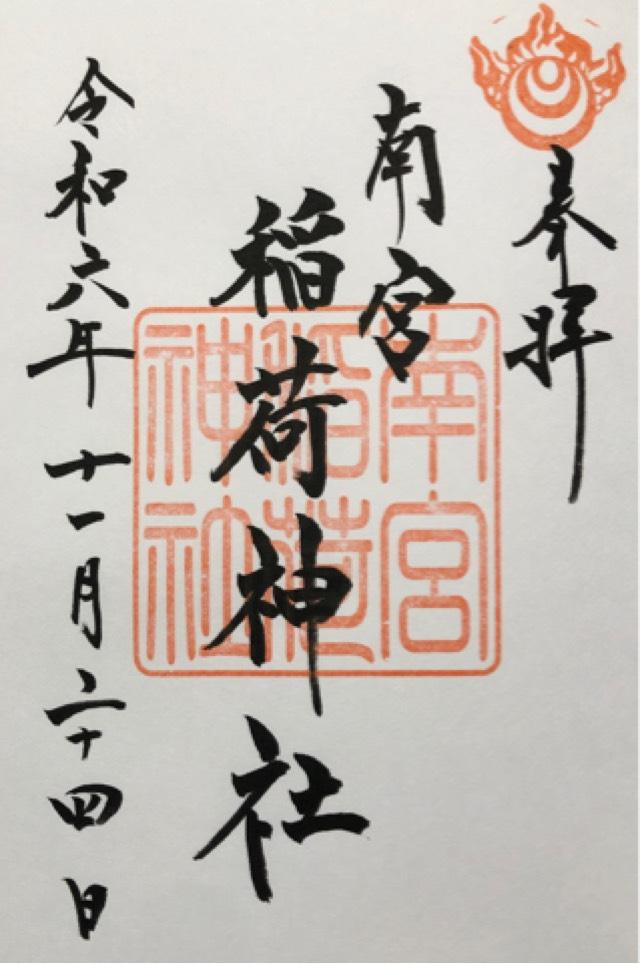 奉拝
南宮
稲荷神社
南宮
稲荷
神社
令和六年十一月二十四日